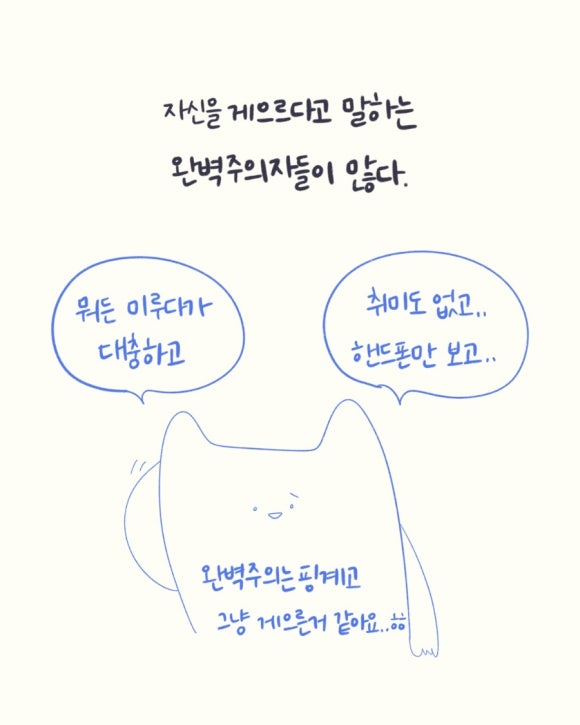 자신을 게으르다고 말하는
완벽주의자들이 많다.
뭐든 미루다가
대충하고
취미도 없고..
핸드폰만 보고..
완벽주의는 핑계고
그냥 게으른거 같아요..ㅎㅎ